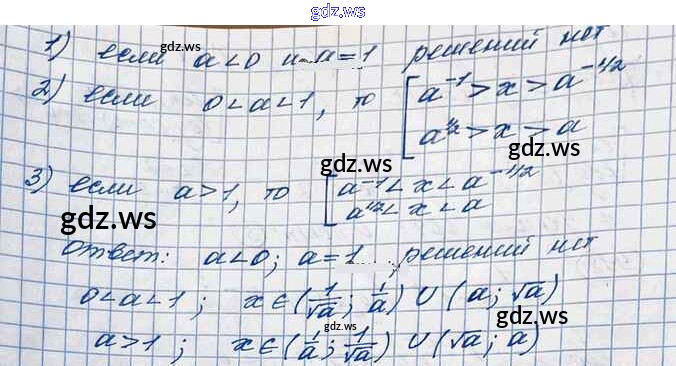 gdz.ws
1) если a<0 и a=1 решений нет
gdz.ws
2) если 0<a<1, то [ a⁻¹ > x > a^(-1/2)
a^(1/2) > x > a
gdz.ws
3) если a>1, то [ a⁻¹ < x < a^(-1/2)
a^(1/2) < x < a
gdz.ws
gdz.ws
Ответ: a<0; a=1, решений нет
0<a<1; x∈(1/√a; 1/a) ∪ (a; √a)
gdz.ws
a>1; x∈(1/a; 1/√a) ∪ (√a; a)
gdz.ws